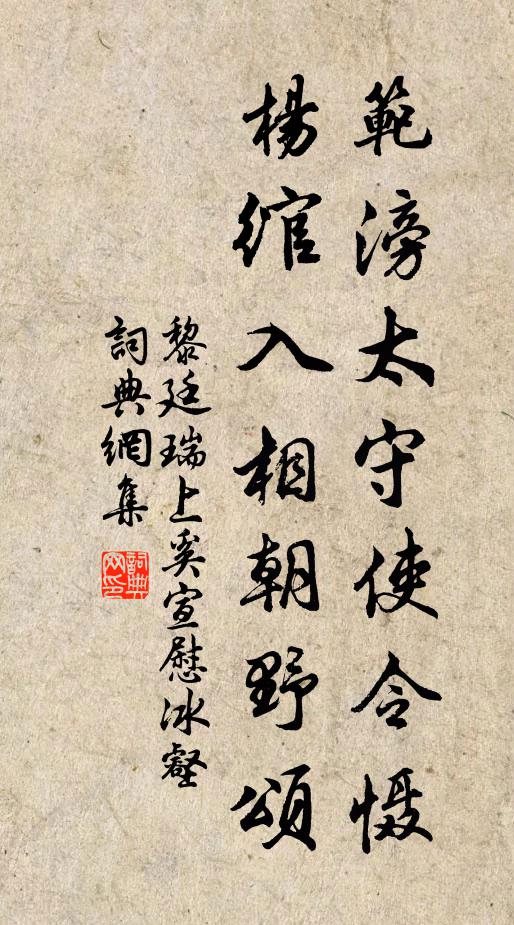 範滂太守使令慑
楊綰入相朝野頌
黎廷瑞上奚宣慰冰壑
詞典網集
詞典網印